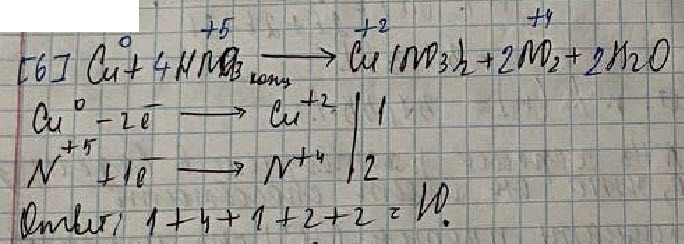 [6] Cu⁰ + 4HN⁺⁵O₃ конц → Cu⁺²(NO₃)₂ + 2N⁺⁴O₂ + 2H₂O
Cu⁰ - 2e̅ → Cu⁺² | 1
N⁺⁵ + 1e̅ → N⁺⁴ | 2
Ответ: 1 + 4 + 1 + 2 + 2 = 10.